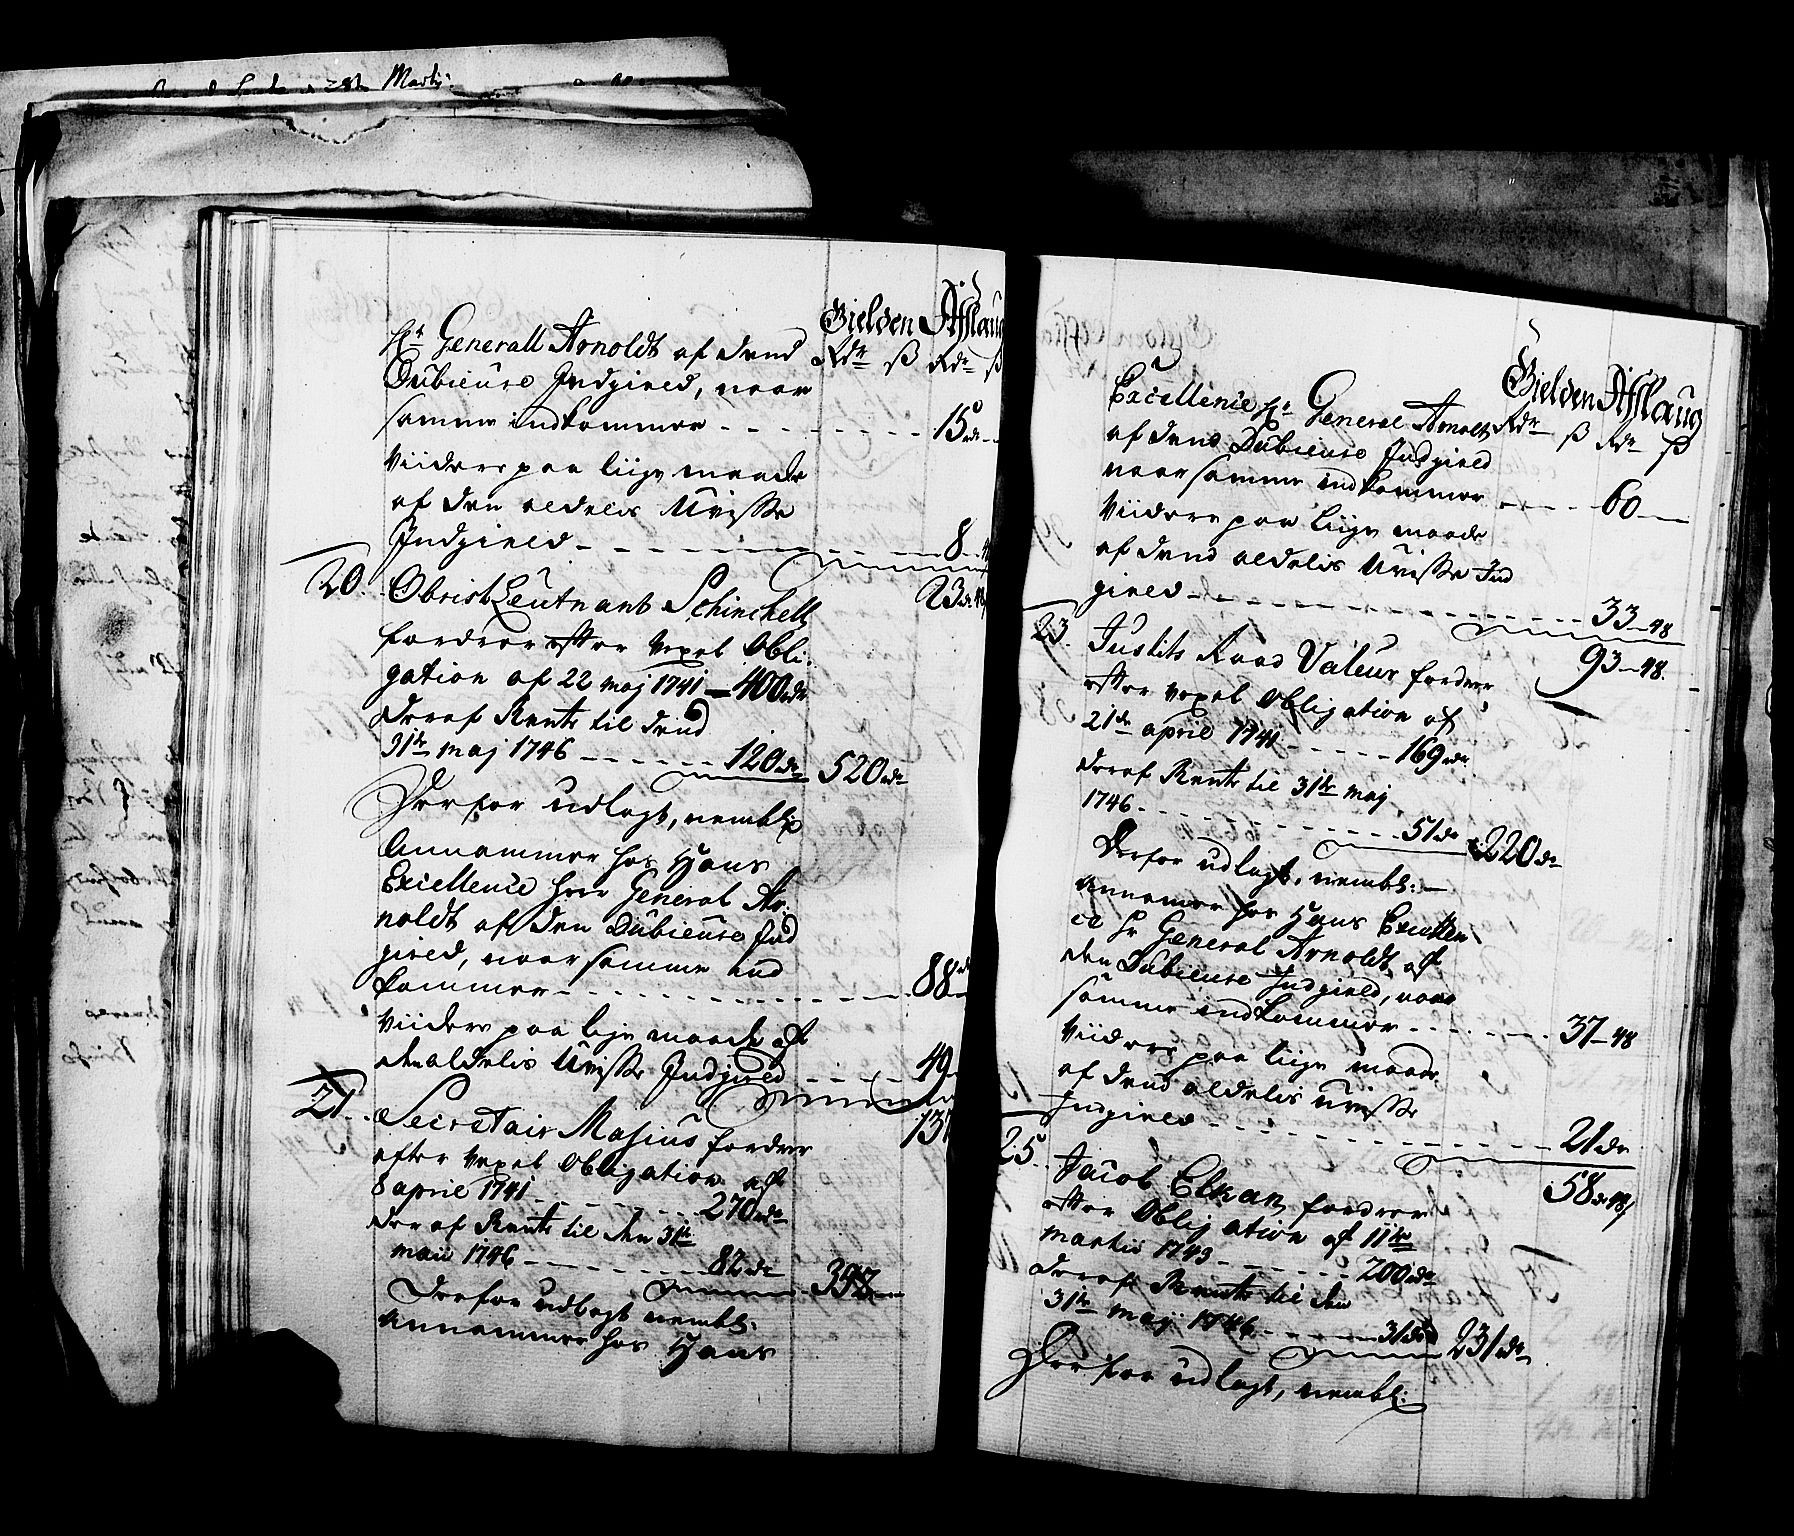 28de Martij
Gielden Afslaug
Rdr ß Rdr ß
Hr Generall Arnoldt af dend
Dubieuse Indgield, naar
samme indkommer - - - 15rdr
Viidere paa liige maade
af den aldelis Uvisse
Indgield - - - 8
23rdr 48
20. Obrist Leutnant Schinchell
fordrer efter Vexel Obli-
gation af 22 maj 1741 — 400rdr
Deraf Rente til dend
31te maj 1746 - - - 120rdr 520rdr
Derfor udlagt, nemblig
Annammer hos Hans
Excellence herr General Ar-
noldt af den Dubieuse Ind
gield, naar samme ind
kommer - - - 88rd
Viidere paa lige maade af
den aldelis Uvisse Indgield - - - 49
137
21. Secretair Masius fordrer
efter Vexel Obligation af
8 aprili 1741 - - - 270rdr
Deraf Rente til den 31te
maii 1746 - - - 82rdr 352
Derfor udlagt nembl:
annammer hos Hans
Gielden Afslaug
Rdr ß Rdr ß
Excellence Hr General Arnoldt
af dend Dubieuse Indgield
naar samme indkommer - - - 60
Viidere paa liige maade
af dend aldelis Uvisse Ind
gield - - - 33 - 48
93 - 48.
23. Justits Raad Valeur fordrer
efter Vexel Obligation af
21de aprili 1741 - - - 169rdr
deraf Rente til 31te maj
1746 - - - 51rdr 220rdr
Derfor udlagt, nembl: —
annammer hos Hans Excellen
ce Hr General Arnoldt af
den Dubieuse Indgield, naar
samme indkommer - - - 37 - 48
Viidere paa liige maade
af dend aldelis Uvisse
Indgield - - - 21rdr
58rdr 48ß
25. Jacob Elkan fordrer
efter Obligation af 11te
martii 1743 - - - 200rdr
Deraf Rente til den
31te maij 1746 - - - 31rdr 231rdr
Derfor udlagt, nembl: